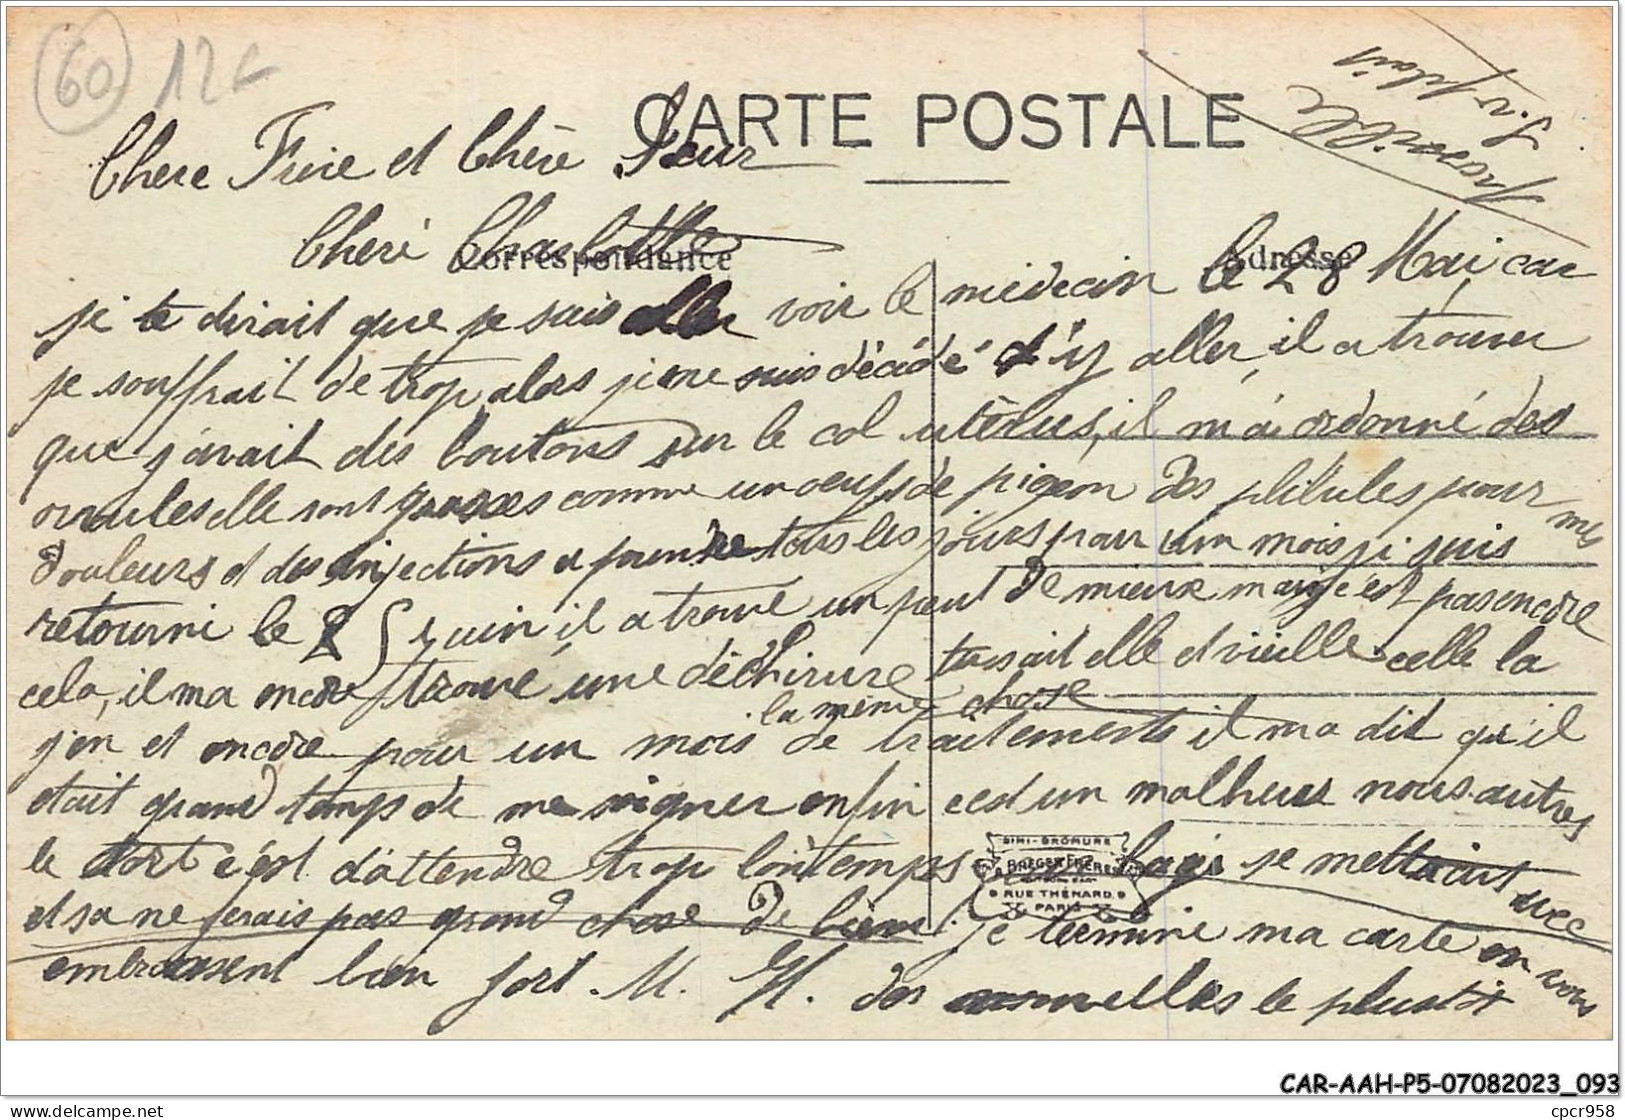 60 12c
CARTE POSTALE
Chere Frère et Chère Sœur
Cheré Charlotte
Correspondance
Adresse
je te dirait que je suis aller voir le médecin le 28 Mai, car
je souffrait de trop alors je me suis décidé d'y aller, il a trouver
que j'avait des boutons sur le col utérus, il m'a ordonné des
ovules elle sont grosses comme un oeufs de pigeon des pilules pour mes
douleurs et des injections a prendre tous les jours par un mois je suis
retourné le 25 Juin il a trouvé un peut de mieux mais c'est pas encore
cela, il ma encore trouvé une déchirure elle et vieille celle la
j'en et encore pour un mois de traitements il ma dit qu'il
la même chose
était grand temps de me soigner enfin c'est un malheur nous autres
le tort c'est d'attendre trop lontemps se mettait avec
et sa ne ferais pas grand chose de bien. je termine ma carte en vous
embrassent bien fort. M. H. des nouvelles le plustôt
SIMI-BROMURE
BREGER FRÈRES
RUE THÉNARD
PARIS
CAR-AAH-P5-07082023_093
delcampe.net
cpcr958